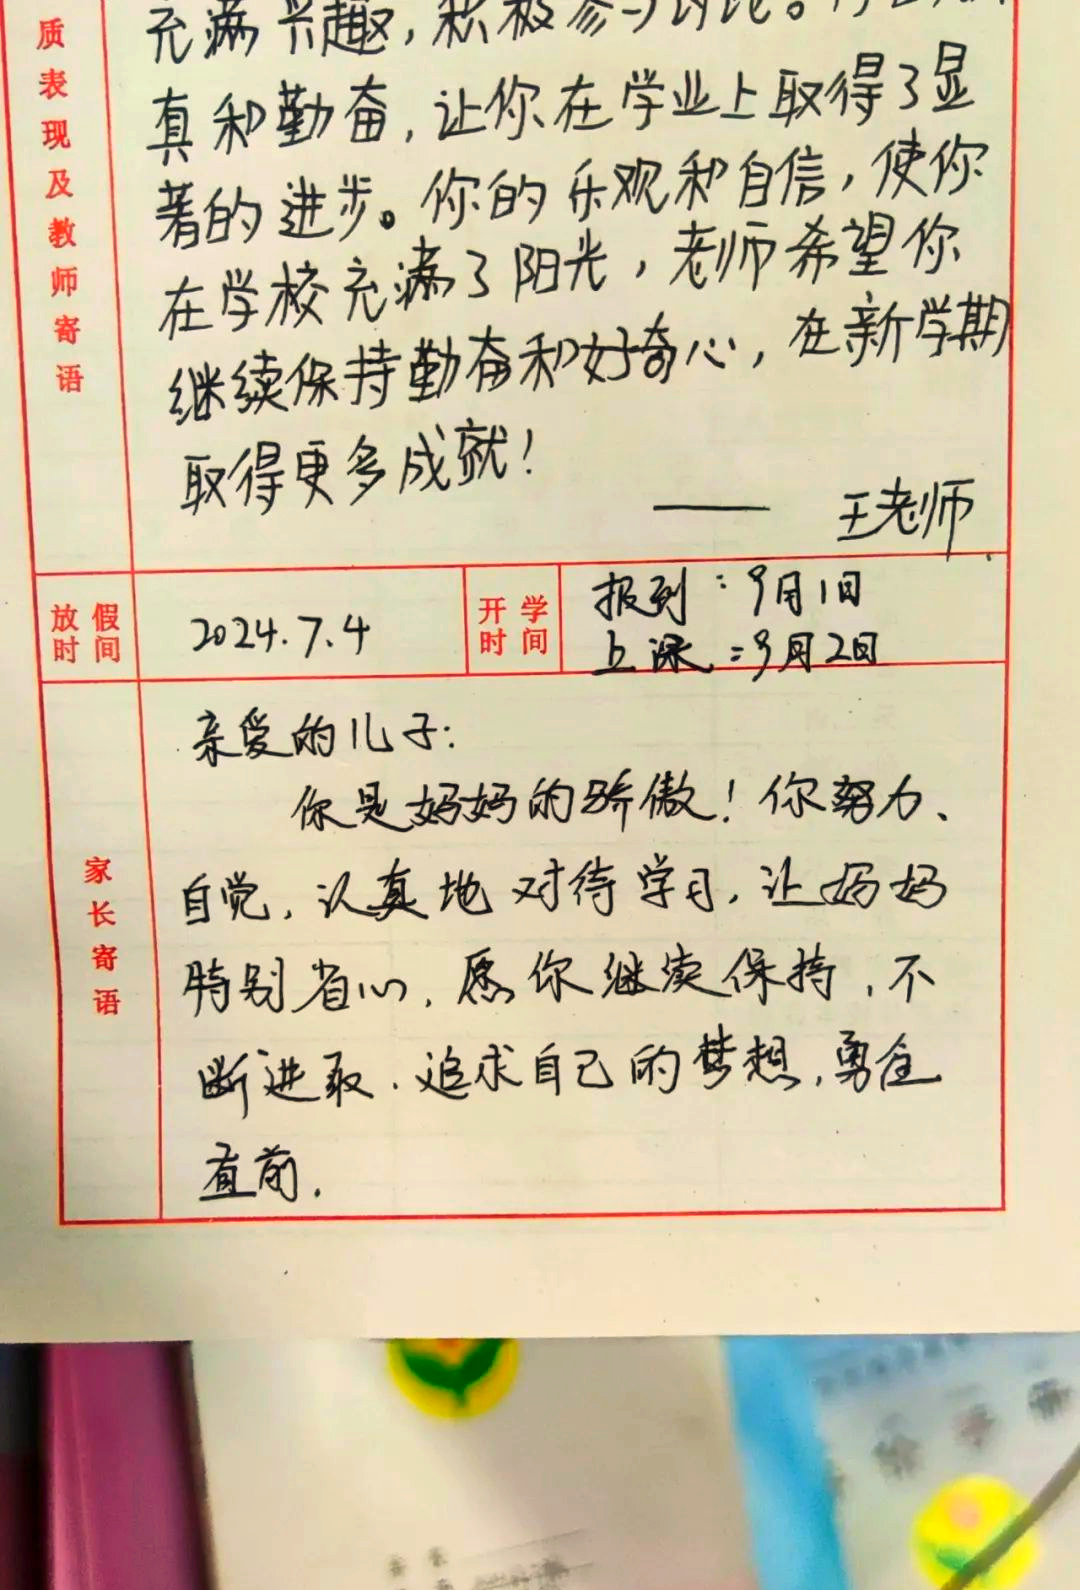 质表现及教师寄语
充满兴趣，积极参与讨论。
真和勤奋，让你在学业上取得了显
著的进步。你的乐观和自信，使你
在学校充满了阳光，老师希望你
继续保持勤奋和好奇心，在新学期
取得更多成就！
—— 王老师
放假时间
2024.7.4
开学时间
报到：9月1日
上课：9月2日
家长寄语
亲爱的儿子：
你是妈妈的骄傲！你努力、
自觉，认真地对待学习，让妈妈
特别省心，愿你继续保持，不
断进取．追求自己的梦想，勇往
直前．